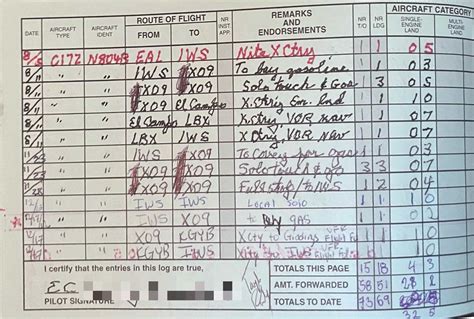 DATE AIRCRAFT TYPE AIRCRAFT IDENT ROUTE OF FLIGHT FROM TO NR INST APP. REMARKS AND ENDORSEMENTS NR T/O NR LDG AIRCRAFT CATEGORY SINGLE-ENGINE LAND MULTI-ENGINE LAND
8/5 C172 N8048 EAL IWS Nite X Ctry 1 1 0 5
8/11 " " IWS X09 To buy gasoline 1 1 0 3
8/11 " " X09 X09 Solo Touch & Goa 3 3 0 5
8/11 " " X09 El Campo X.Ctry Em. lnd 1 1 1 0
8/11 " " El Campo LBX X.Ctry, VOR nav 1 1 0 7
8/11 " " LBX IWS X Ctry, VOR nav 1 1 0 7
11/23 " " IWS X09 To Covey for gas 1 1 0 3
11/23 " " X09 X09 Solo Touch & go 3 3 0 7
11/23 " " X09 X09 Full Stop / to IWS 1 2 0 4
" " IWS IWS Local Solo 1 1 1 0
" " IWS X09 to Buy gas 1 1 0 2
" " X09 KGYB X Cty to Giddings VFR
" " KGYB IWS
I certify that the entries in this log are true,
PILOT SIGNATURE EC
TOTALS THIS PAGE 15 18
AMT. FORWARDED 58 51 28 2
TOTALS TO DATE 73 69
32 5